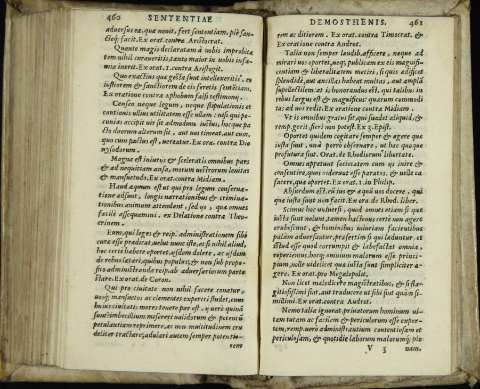 460 SENTENTIAE
aduersus ea, quæ nouit, fert sententiam, piè san-
ctéq; facit. Ex orat. contra Aristocrat.
Quanto magis declaratam à uobis improbita
tem nihil uerueritis, tanto maior in uobis infa-
mia inerit. Ex orat. 1. contra Aristogit.
Quo exactius quæ gesta sunt intellexeritis, eò
iustiorem & sanctiorem de eis feretis sententiam.
Ex oratione contra aphobum falsi testimonij.
Censeo neque legum, neque stipulationis et
cautionis ullius utilitatem esse ullam: nisi qui pe-
cunias accipit uir sit admodum iustus, hocque pa-
cto deorum alterum sit, aut nos timeat, aut eum,
quo cum pactus est, uereatur. Ex ora. contra Dio
nysodorum.
Magna est iniurijs & sceleratis omnibus pars
ad nequitiam ansa, morum uestrorum lenitas
& mansuetudo. Ex orat. contra Midiam.
Haud æquum est ut qui pro legum conserua-
tione adsunt, longis narrationibus & crimina-
tionibus animum attendant, sed ijs, quæ omnes
facilè assequamini. ex Delatione contra Theo-
crinem.
Enim, qui leges & reip. administrationem sibi
curæ esse prædicat, uelut nunc iste, et si nihil aliud,
hoc certè habere oportet, asdem dolere, ac ijsdem
de rebus lætari, quibus populus, & non sub præte-
xtu administrandæ reip. ab aduersariorum parte
stare. Ex orat. de Coron.
Qui pro ciuitate non nihil facere conatur,
uosq; mansuetos ac clementes experiri studet, cum
huiusciuitatis mores tenere par est, & uerò quin
sunt imbecillium misereri, ualidorum & potentium
petulantiam reprimere, ac non multitudinem cru
deliter tractare, adulari autem semper potentio-
rem
DEMOSTHENIS. 461
rem ac ditiorem. Ex orat. contra Timocrat. &
Ex oratione contra Androt.
Talia non semper laudib. afficere, neque ad
mirari uos oportet, neq; publicam ex eis magnifi-
centiam & liberalitatem metiri, si quis ædificet
splendidè, aut ancillas habeat multas, aut amplam
supellectilem: at is honorandus est, qui talibus in
rebus largus est & magnificus quarum commodi-
tas ad uos redit. Ex oratione contra Midiam.
Vt ijs omnibus gratus sit, quod fiat aliquid, &
remp. geri fieri non potest. Ex 3. Epist.
Oportet quidem cogitare semper & agere quæ
iusta sunt, unà porrò obseruare, ut hæc quoque
profutura sint. Orat. de Rhodiorum libertate.
Omnes appetunt societatem cum ijs inire &
consentire, quos uiderint esse paratos, & uelle ea
facere, quæ oportet. Ex orat. 1. in Philip.
Absurdum est, eū ius & æquū uos docere, qui
quæ iusta sunt non facit. Ex ora. de Rhod. liber.
Scimus hoc uniuersi, quod omnes etiam si quæ
iusta sunt nolunt, tamen hactenus certè non agere
erubescunt, & hominibus iniuriam facientibus
palàm aduersantur, præsertim si qui læduntur, et
omnia esse quod corrumpit & labefactat omnia,
reperiemus, hocq; omnium malorum esse princi-
pium, nolle uidelicet quæ iusta sunt simpliciter a-
gere. Ex orat. pro Megalopolit.
Non licet maledicere magistratibus, & si flagi-
tiosissimi sint, aut traducere ut sibi sunt quàm si-
millimi. Ex orat. contra Androt.
Nemo talia ignorat, priuatorum hominum ui-
tam tutam ac facilem & periculorum esse exper-
tem, remp. uero administrantium contentiosam et
periculosam, & quotidie laborum malorumq; ple
V 3 nam.